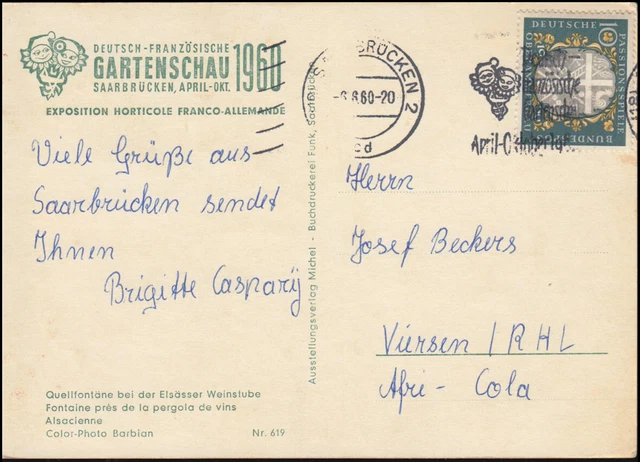 DEUTSCH-FRANZÖSISCHE
GARTENSCHAU 1960
SAARBRÜCKEN, APRIL-OKT.
EXPOSITION HORTICOLE FRANCO-ALLEMANDE
Viele Grüße aus
Saarbrücken sendet
Ihnen
Brigitte Casparÿ
Quellfontäne bei der Elsässer Weinstube
Fontaine près de la pergola de vins
Alsacienne
Color-Photo Barbian Nr. 619
Ausstellungsverlag Michel - Buchdruckerei Funk, Saarbrücken
SAARBRÜCKEN 2
60-20
cd
April-Oktober
DEUTSCHE
BUNDES
10
PASSIONSSPIELE
Herrn
Josef Beckers
Viersen / RHL
Afri-Cola